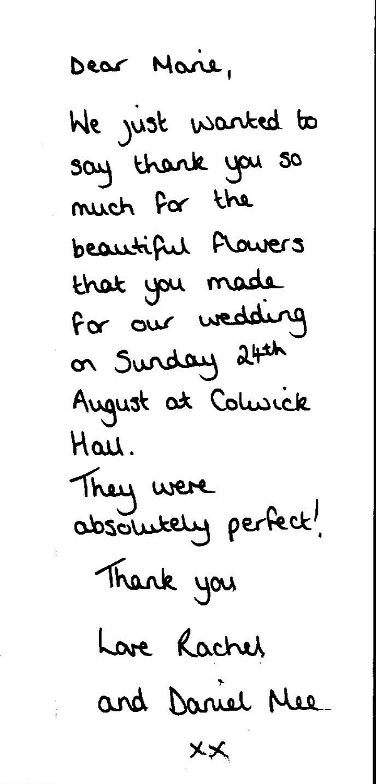 Dear Marie,
We just wanted to
say thank you so
much for the
beautiful flowers
that you made
for our wedding
on Sunday 24th
August at Colwick
Hall.
They were
absolutely perfect!
Thank you
Love Rachel
and Daniel Mee
xx